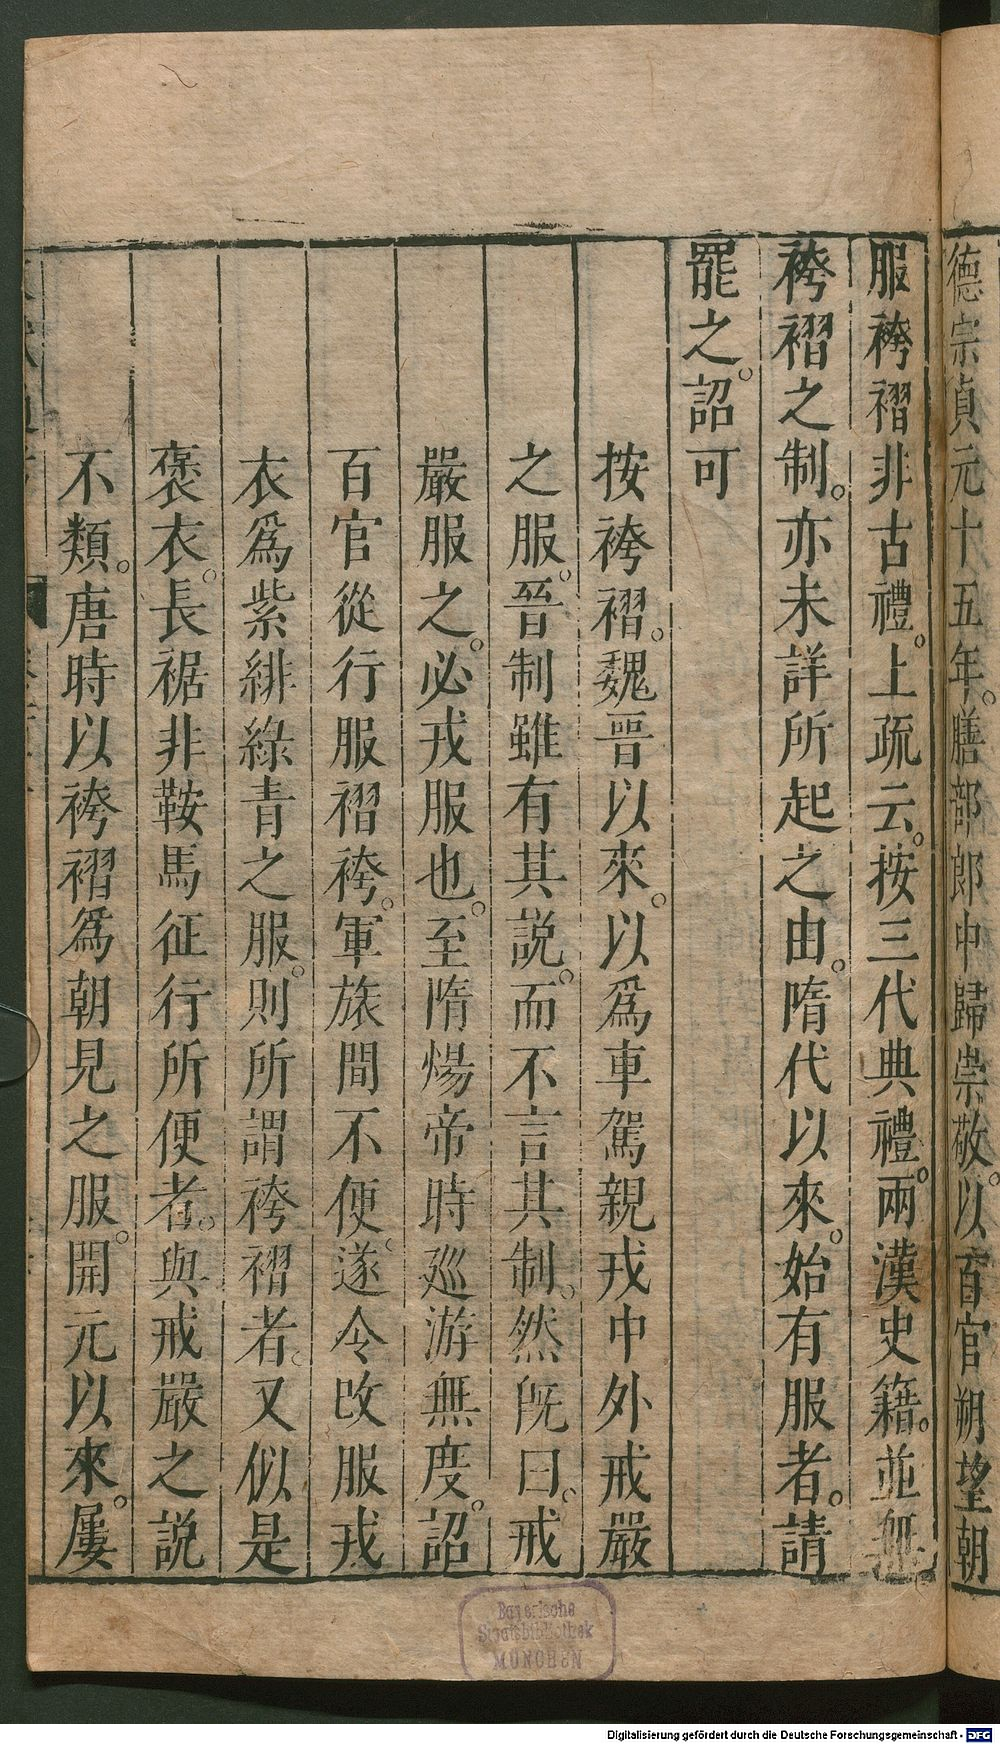 德宗貞元十五年。膳部郎中歸崇敬。以百官朔望朝
服袴褶非古禮。上疏云。按三代典禮。兩漢史籍。並無
袴褶之制。亦未詳所起之由。隋代以來。始有服者。請
罷之。詔可
按袴褶。魏晉以來。以爲車駕親戎中外戒嚴
之服。晉制雖有其說。而不言其制。然旣曰。戒
嚴服之。必戎服也。至隋煬帝時巡游無度。詔
百官從行服褶袴。軍旅間不便。遂令改服戎
衣爲紫緋綠青之服。則所謂袴褶者。又似是
褒衣。長裾非鞍馬征行所便者。與戒嚴之說
不類。唐時以袴褶爲朝見之服。開元以來。屢
Bayerische
Staatsbibliothek
MÜNCHEN
Digitalisierung gefördert durch die Deutsche Forschungsgemeinschaft - DFG